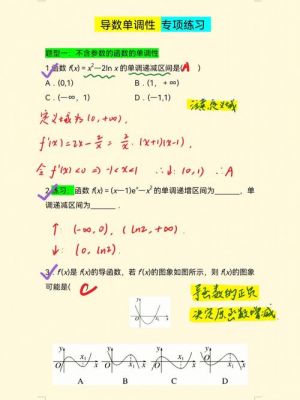 导数单调性 专项练习
题型一：不含参数的函数的单调性
1.函数 f(x) = x²－2ln x 的单调递减区间是( A )
A．(0,1) B．(1，＋∞)
C．(－∞，1) D．(－1,1)
注意定义域
定义域为 (0,+∞),
f'(x)=2x-2/x = 2/x·(x+1)(x-1),
令 f'(x)<0 ⇒ -1<x<1 ∴↓: (0,1) ∴A
2.练习：函数 f(x) = (x－1)eˣ－x² 的单调递增区间为______，单
调递减区间为______．
↑: (-∞,0), (ln2,+∞).
↓: (0,ln2).
3．f'(x)是 f(x)的导函数，若 f'(x)的图象如图所示，则 f(x)的图象
可能是( C
导函数的正负
决定原函数增减
y
x
y x₁ x y x₁ x y x₁ x y x₁ x
A B C D